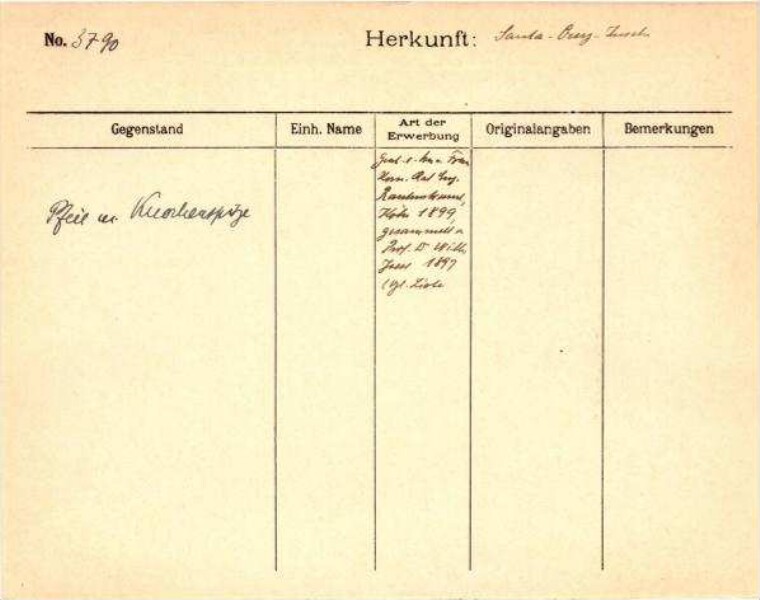 No. 3790
Herkunft: Santa-Cruz-Inseln
Gegenstand
Einh. Name
Art der
Erwerbung
Originalangaben
Bemerkungen
Pfeil m. Knochenspitze
Frau
Rautenstrauch,
Köln 1899,
gesammelt v.
Prof. Dr. Wilh.
Joest 1897
Liste